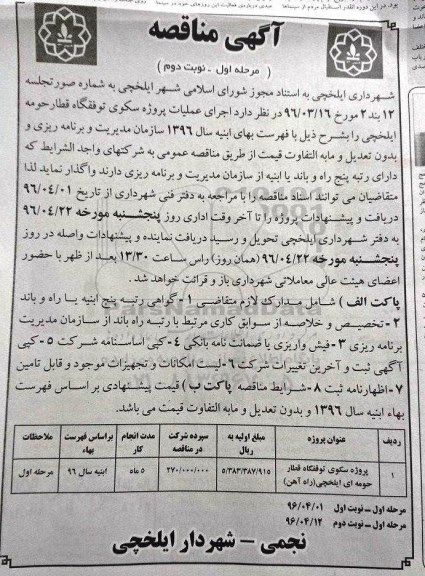 آگهی مناقصه
( مرحله اول ـ نوبت دوم )
شهرداری ایلخچی به استناد مجوز شورای اسلامی شهر ایلخچی به شماره صورتجلسه
۱۲ بند ۲ مورخ ۹۶/۰۳/۱۶ در نظر دارد اجرای عملیات پروژه سکوی توقفگاه قطار حومه
ایلخچی را بشرح ذیل با فهرست بهای ابنیه سال ۱۳۹۶ سازمان مدیریت و برنامه ریزی و
بدون تعدیل و مابه التفاوت قیمت از طریق مناقصه عمومی به شرکتهای واجد الشرایط که
دارای رتبه پنج راه و باند یا ابنیه از سازمان مدیریت و برنامه ریزی دارند واگذار نماید لذا
متقاضیان می توانند اسناد مناقصه را با مراجعه به دفتر فنی شهرداری از تاریخ ۹۶/۰۴/۰۱
دریافت و پیشنهادات پروژه را تا آخر وقت اداری روز پنجشنبه مورخه ۹۶/۰۴/۲۲
به دفتر شهرداری ایلخچی تحویل و رسید دریافت نماینده و پیشنهادات واصله در روز
پنجشنبه مورخه ۹۶/۰۴/۲۲ (همان روز) راس ساعت ۱۳/۳۰ بعد از ظهر با حضور
اعضای هیئت عالی معاملاتی شهرداری باز و قرائت خواهد شد.
پاکت الف ) شامل مدارک لازم متقاضی ۱ - گواهی رتبه پنج ابنیه یا راه و باند
۲ - تخصیص و خلاصه از سوابق کاری مرتبط با رتبه راه باند از سازمان مدیریت
برنامه ریزی ۳ - فیش واریزی یا ضمانت نامه بانکی ۴ - کپی اساسنامه شرکت ۵ - کپی
آگهی ثبت و آخرین تغییرات شرکت ۶ - لیست امکانات و تجهیزات موجود و قابل تامین
۷ - اظهارنامه ثبت ۸ - شرایط مناقصه پاکت ب ) قیمت پیشنهادی بر اساس فهرست
بهاء ابنیه سال ۱۳۹۶ و بدون تعدیل و مابه التفاوت قیمت می باشد.
ردیف عنوان پروژه مبلغ اولیه به ریال سپرده شرکت در مناقصه مدت انجام کار براساس فهرست بهاء ملاحظات
۱ پروژه سکوی توقفگاه قطار حومه ای ایلخچی (راه آهن) ۵/۳۸۳/۳۸۷/۹۱۵ ۲۷۰/۰۰۰/۰۰۰ ۵ ماه ابنیه سال ۹۶ مرحله اول
مرحله اول ـ نوبت اول ۹۶/۰۴/۰۱
مرحله اول ـ نوبت دوم ۹۶/۰۴/۱۲
نجمی - شهردار ایلخچی